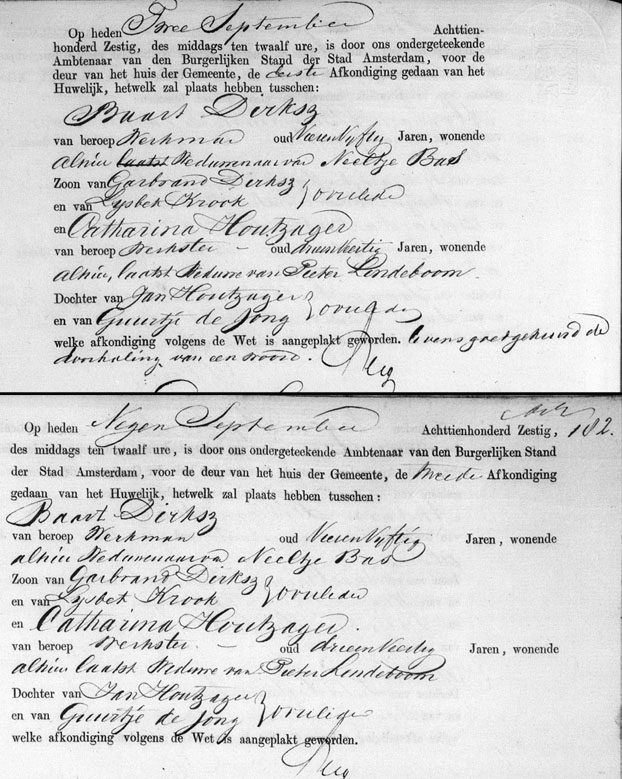 Op heden Twee September Achttien-
honderd Zestig, des middags ten twaalf ure, is door ons ondergeteekende
Ambtenaar van den Burgerlijken Stand der Stad Amsterdam, voor de
deur van het huis der Gemeente, de eerste Afkondiging gedaan van het
Huwelijk, hetwelk zal plaats hebben tusschen:
Baart Dirksz
van beroep Werkman oud Vierenvyftig Jaren, wonende
alhier laatst Weduwenaar van Neeltje Bas
Zoon van Garbrand Dirksz
en van Lysbet Krook overleden
en Catharina Houtzager
van beroep Werkster - oud drieenveertig Jaren, wonende
alhier, laatst Weduwe van Pieter Lindeboom.
Dochter van Jan Houtzager
en van Guurtje de Jong overleden
welke afkondiging volgens de Wet is aangeplakt geworden. tevens goedgekeurd de
doorhaling van een woord.
182.
Op heden Negen September Achttienhonderd Zestig,
des middags ten twaalf ure, is door ons ondergeteekende Ambtenaar van den Burgerlijken Stand
der Stad Amsterdam, voor de deur van het huis der Gemeente, de tweede Afkondiging
gedaan van het Huwelijk, hetwelk zal plaats hebben tusschen:
Baart Dirksz
van beroep Werkman oud Vierenvyftig Jaren, wonende
alhier Weduwenaar van Neeltje Bas
Zoon van Garbrand Dirksz
en van Lysbet Krook overleden
en Catharina Houtzager.
van beroep Werkster - oud drieenveertig Jaren, wonende
alhier laatst Weduwe van Pieter Lindeboom
Dochter van Jan Houtzager
en van Guurtje de Jong
welke afkondiging volgens de Wet is aangeplakt geworden.